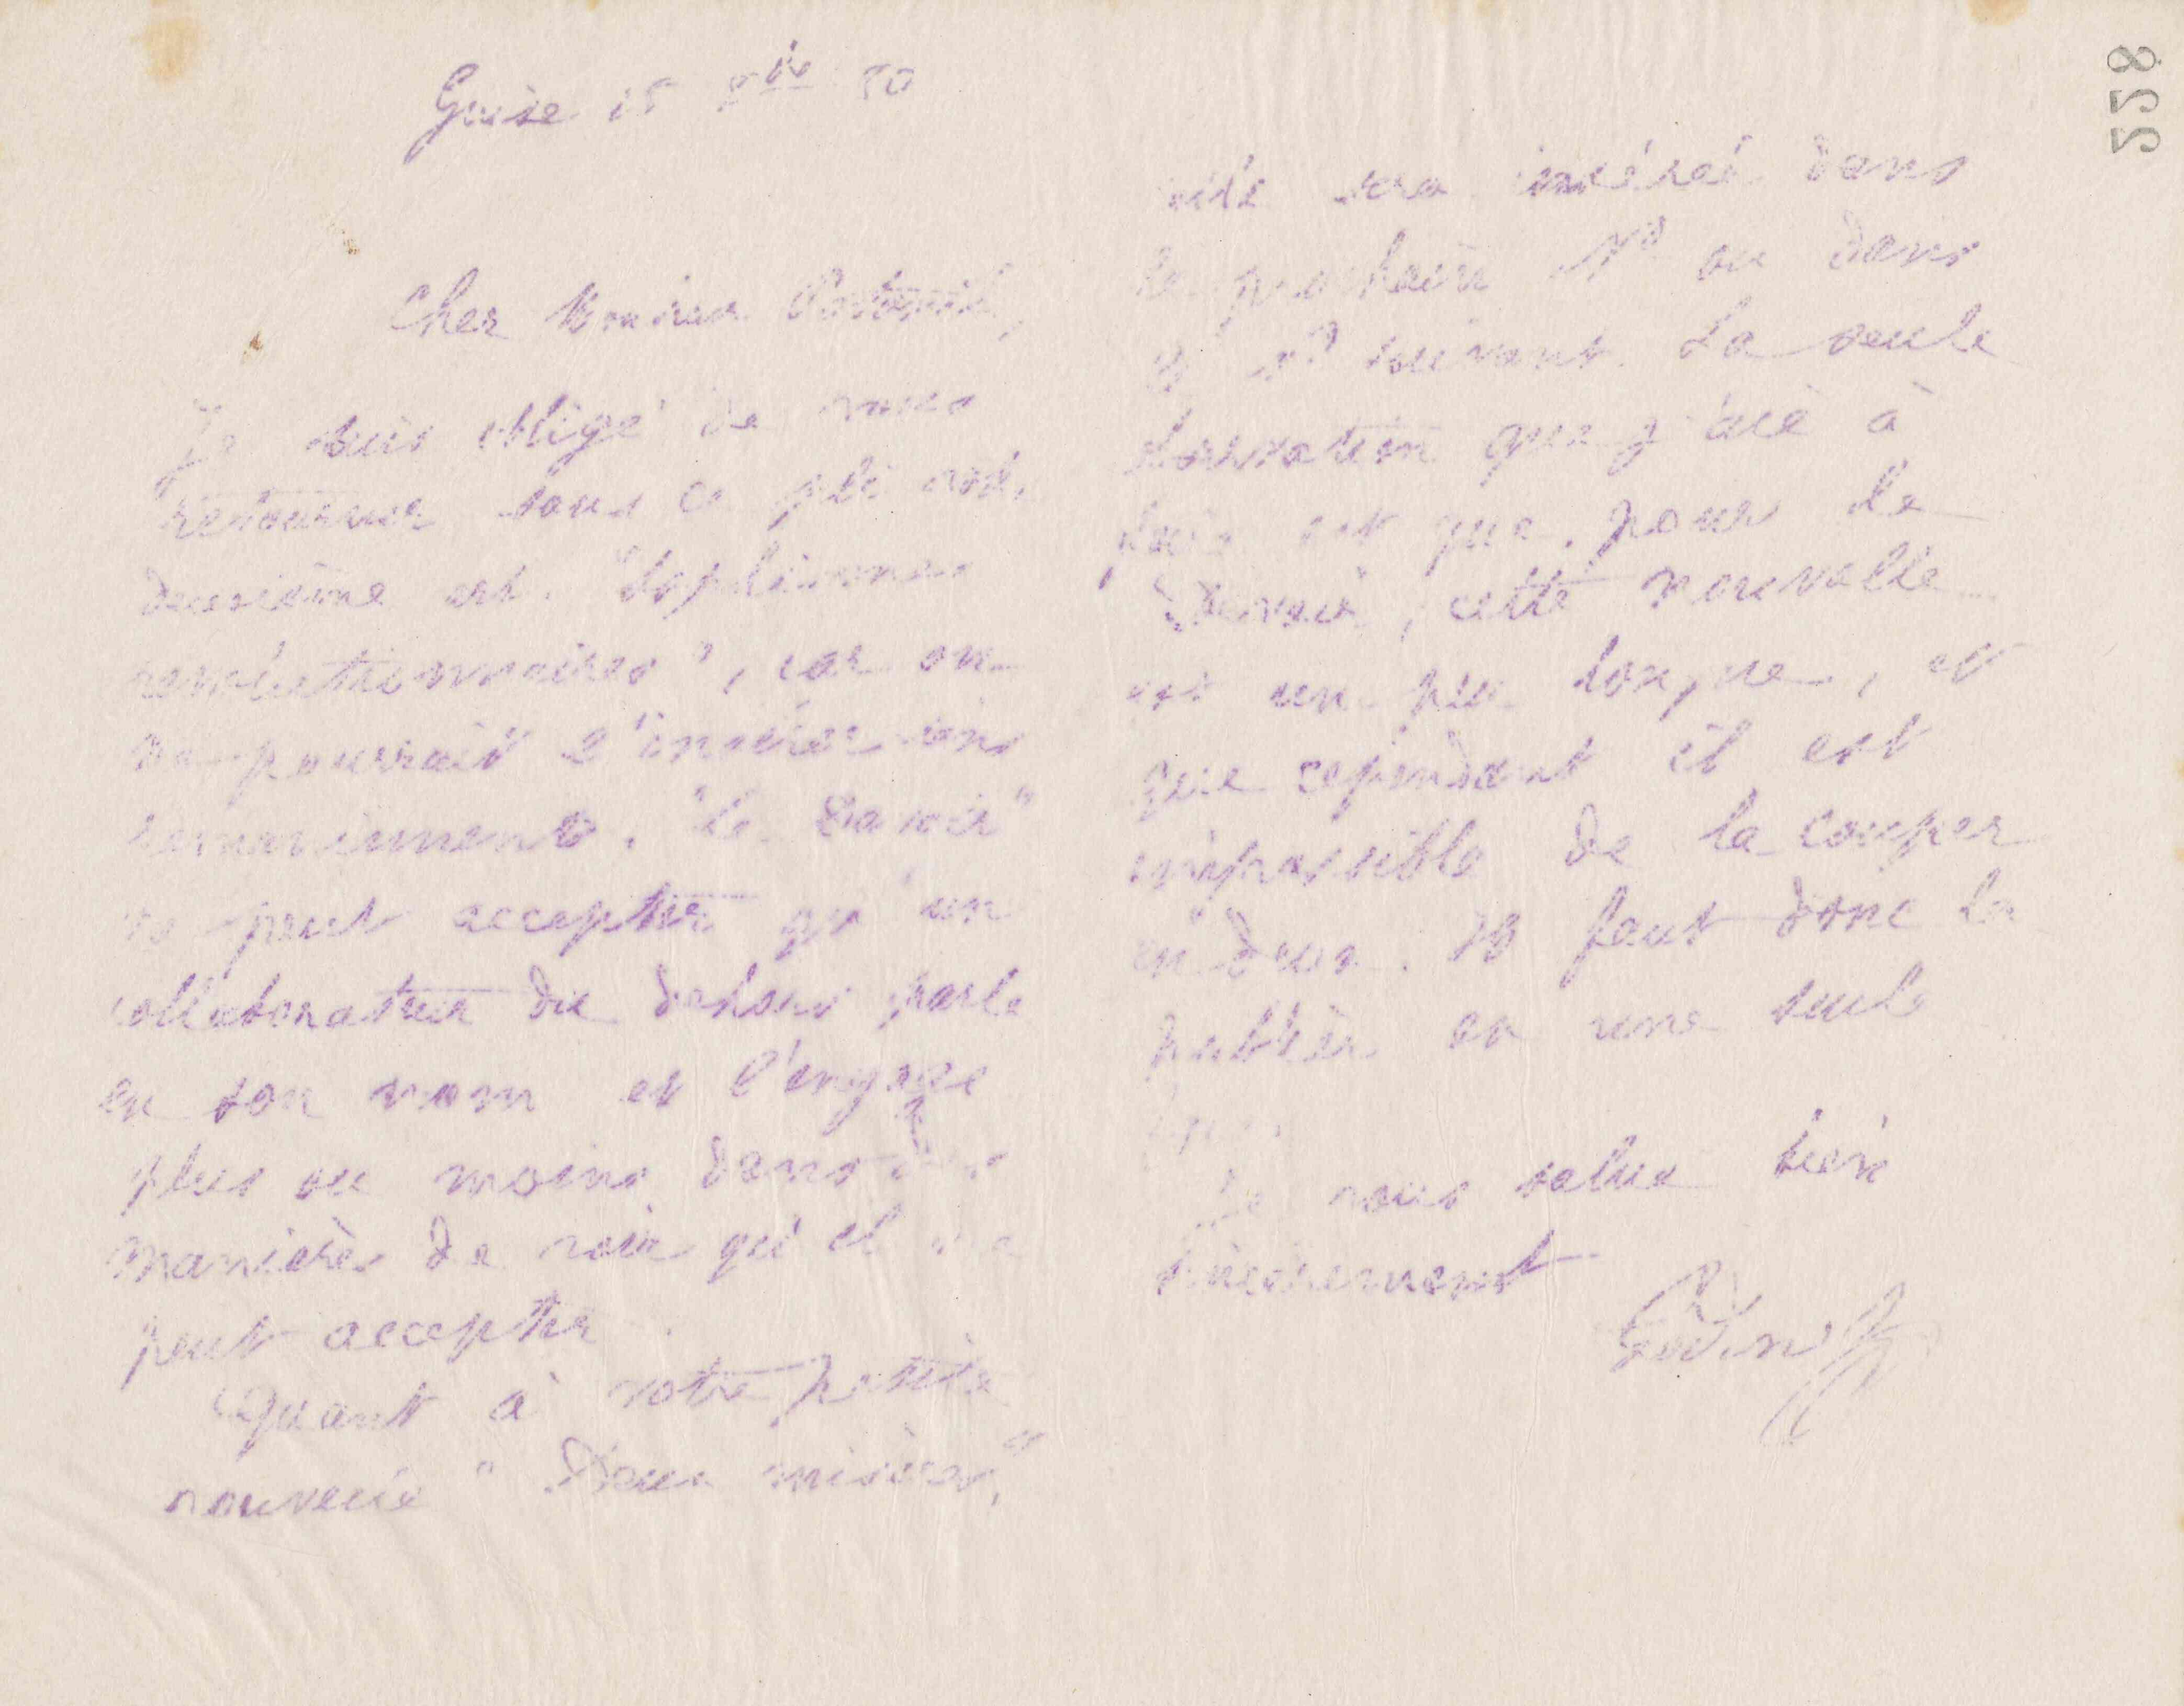 Guise 15 8bre 80
Cher Monsieur
Je suis obligé de vous
retourner sous ce pli votre
deuxième art. "Explosions
révolutionnaires", car on
ne pourrait l'insérer sans
remaniement. "Le Devoir"
ne peut accepter qu'un
collaborateur du dehors parle
en son nom et l'engage
plus ou moins dans des
manières de voir qu'il ne
peut accepter.
Quant à votre petite
nouvelle "Deux misères",
elle sera insérée dans
le prochain No ou dans
le no suivant. La seule
observation que j'aie à
faire est que, pour le
"Devoir", cette nouvelle
est un peu longue, et
que cependant il est
impossible de la couper
en deux. Il faut donc la
publier en une seule
fois.
Je vous salue bien
sincèrement
Godin
558